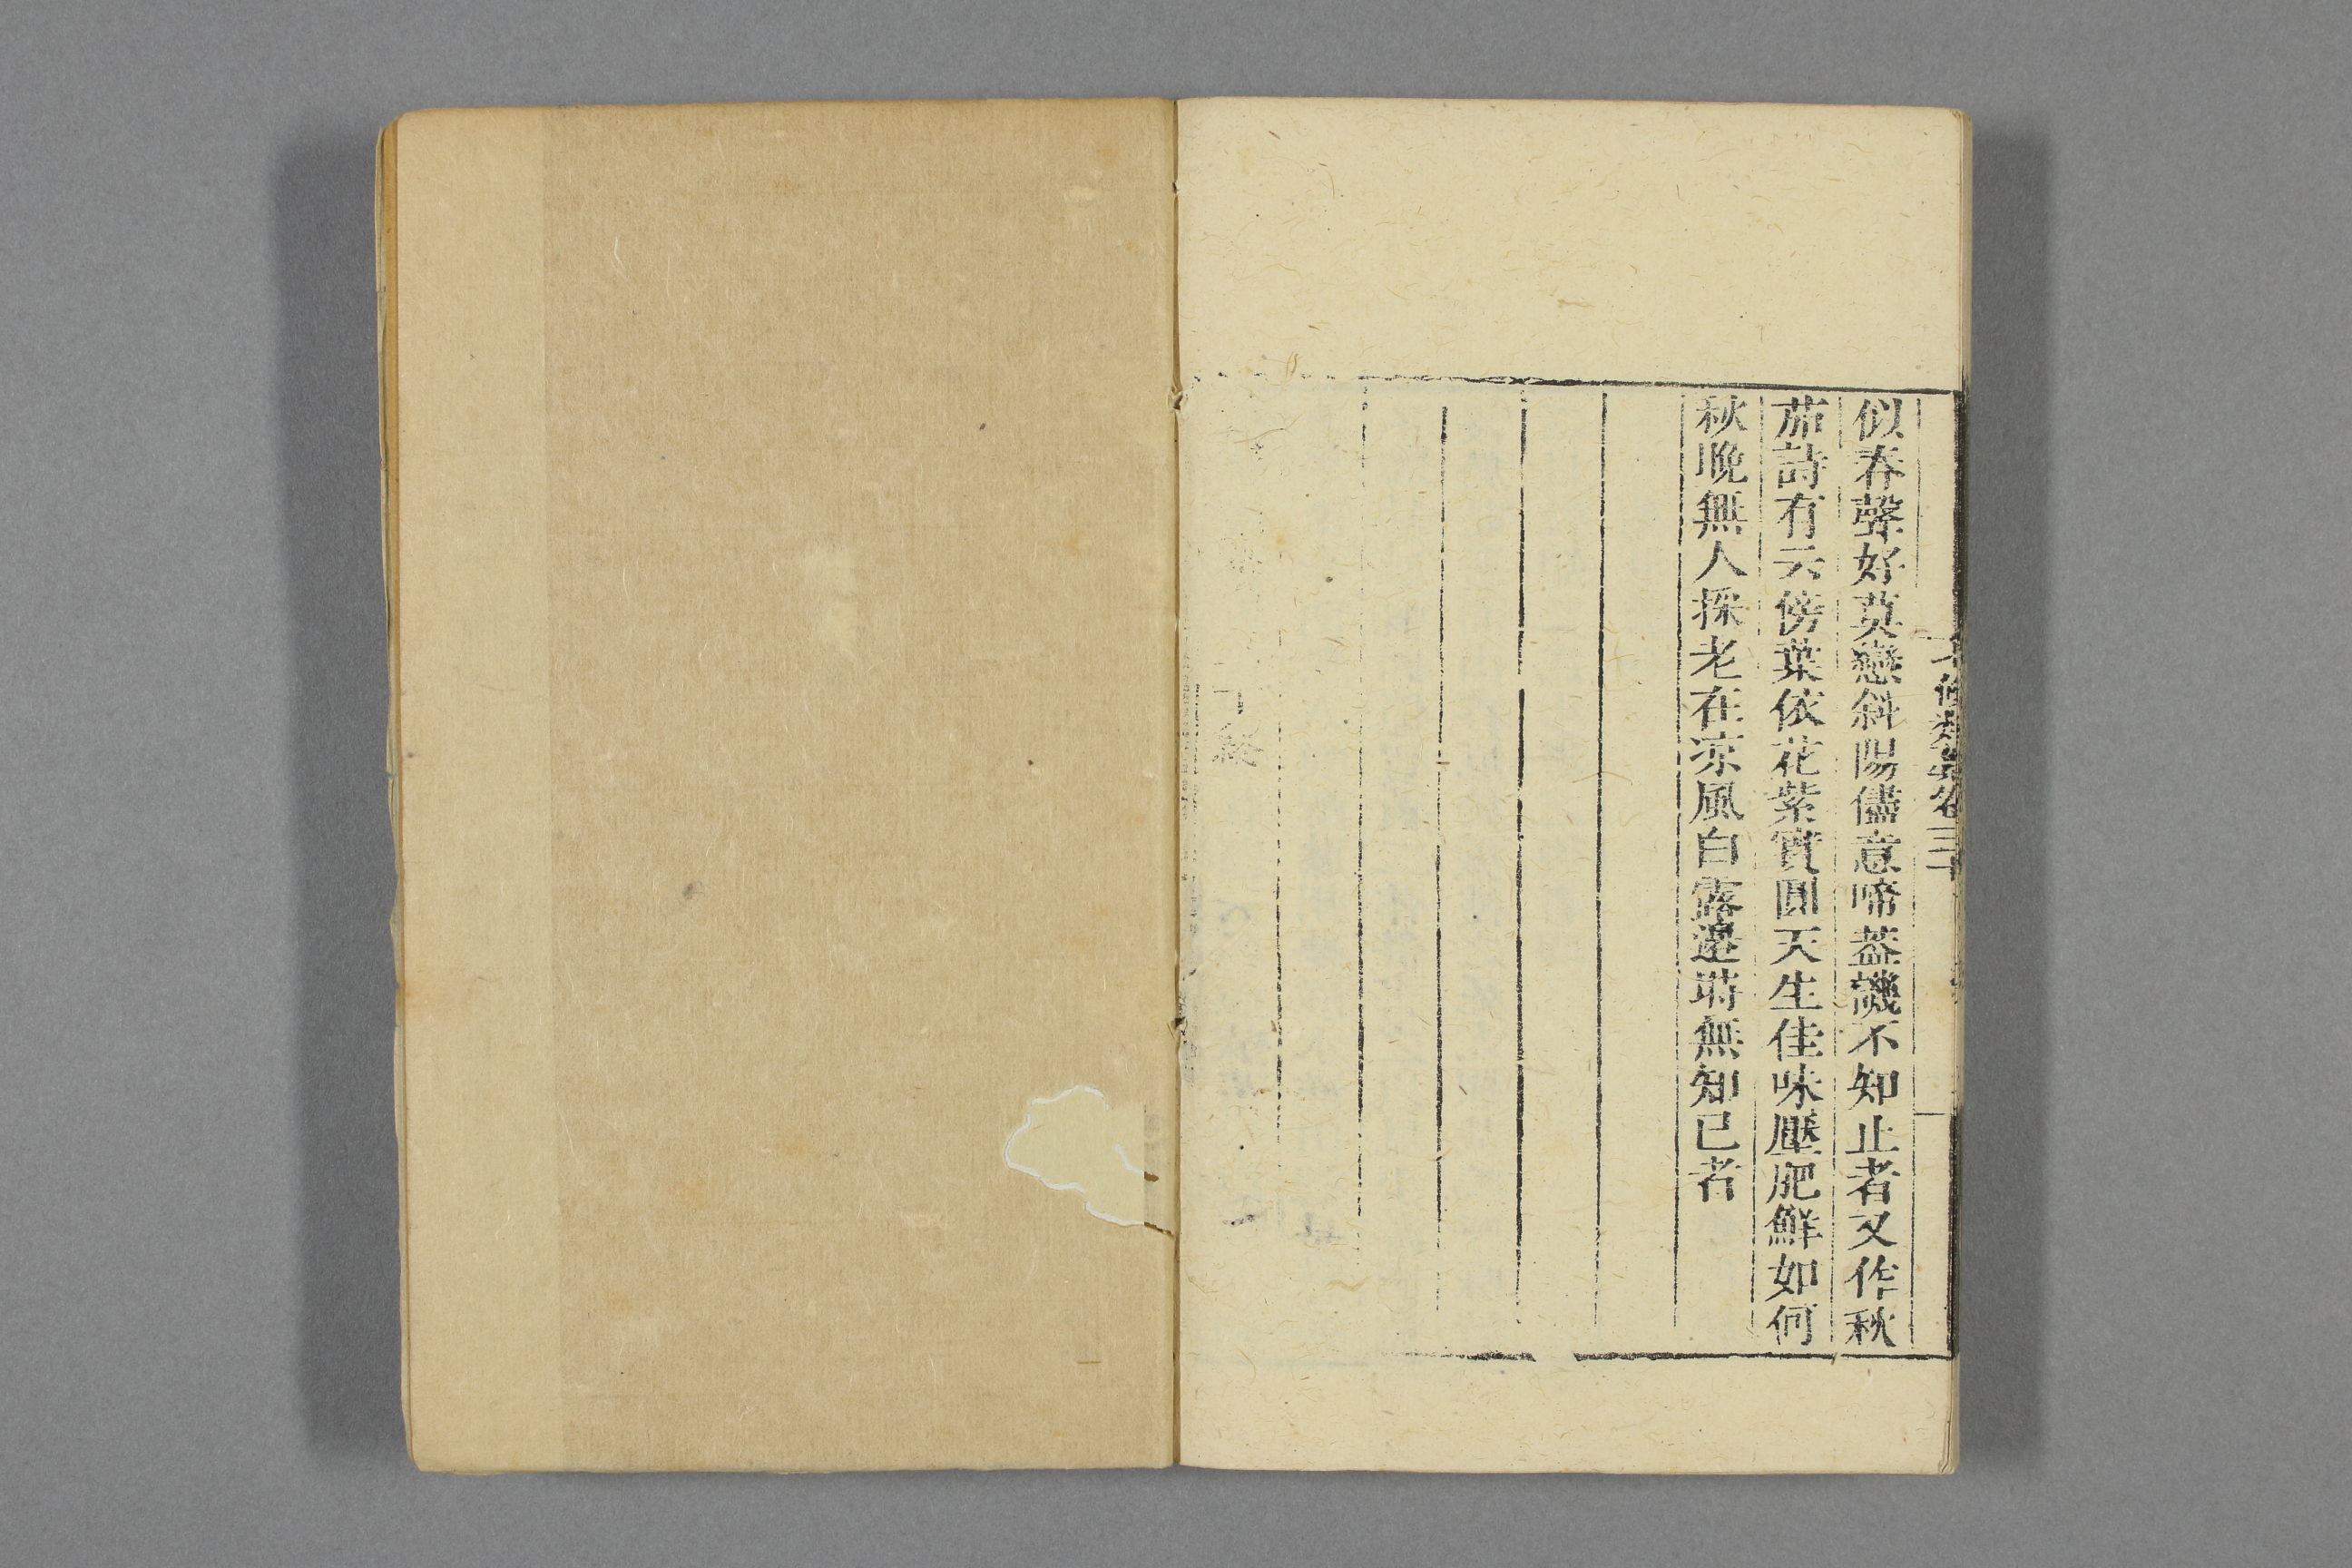 似春聲好莫戀斜陽儘意啼葢譏不知止者又作秋
茄詩有云傍葉依花紫實圓天生佳味壓肥鮮如何
秋晚無人採老在凉風白露邊蒔無知已者
修類藁卷三十